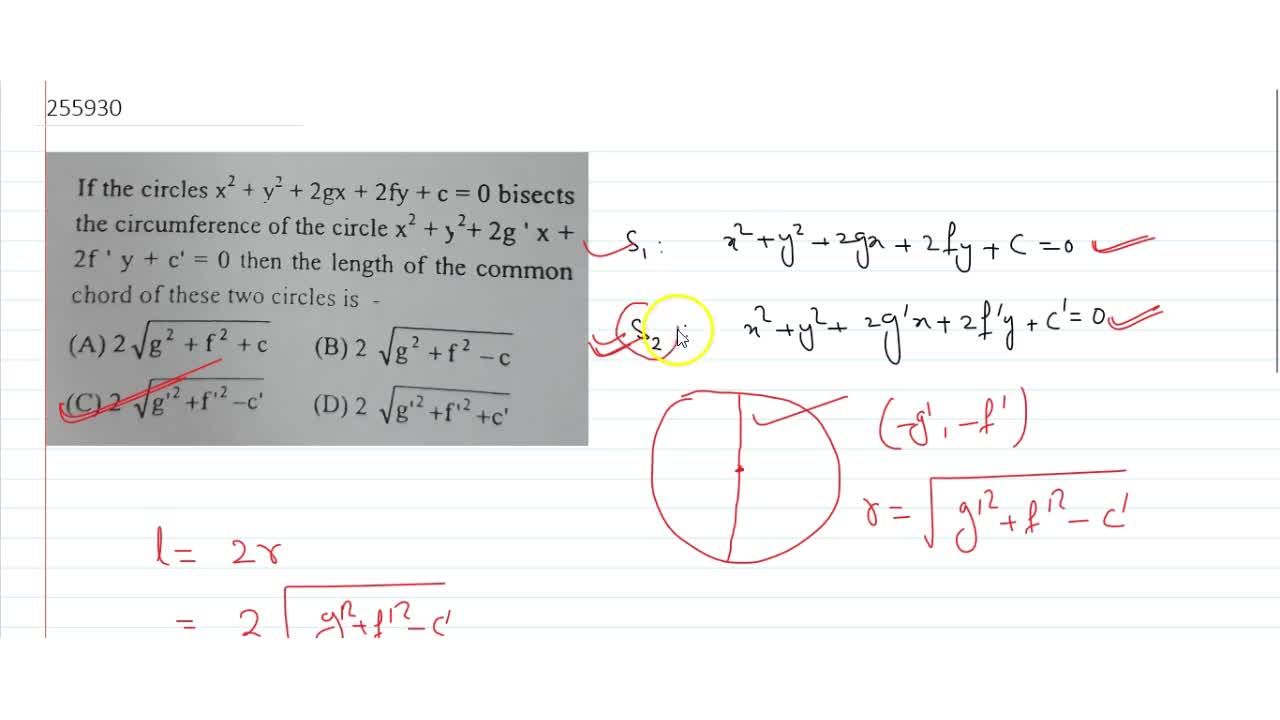 255930
If the circles x² + y² + 2gx + 2fy + c = 0 bisects
the circumference of the circle x² + y²+ 2g ' x +
2f ' y + c' = 0 then the length of the common
chord of these two circles is -
(A) 2 √(g² + f² + c) (B) 2 √(g² + f² − c)
(C) 2 √(g'² +f'² −c') (D) 2 √(g'² +f'² +c')
S₁ : x² + y² + 2gx + 2fy + C = 0
S₂ : x² + y² + 2g'x + 2f'y + c' = 0
(-g', -f')
r = √(g'² + f'² - c')
l = 2r
= 2 √(g'² + f'² - c')